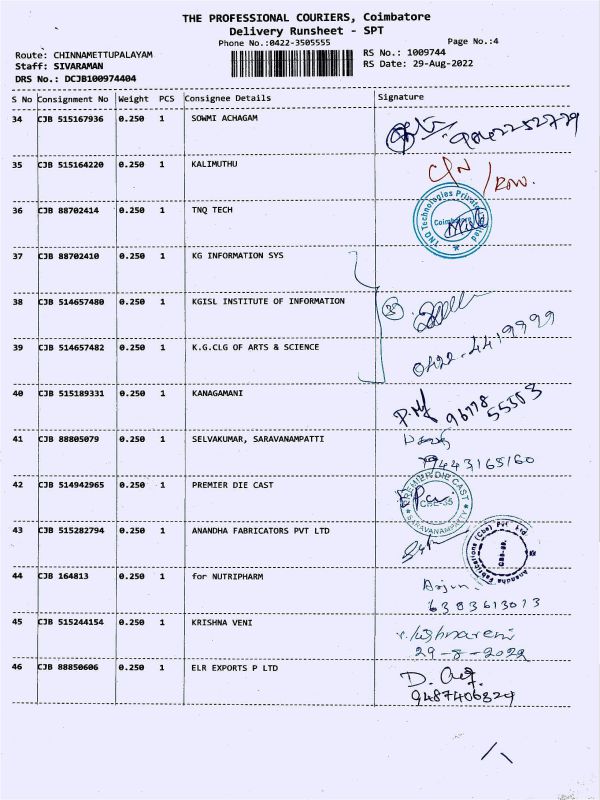 THE PROFESSIONAL COURIERS, Coimbatore
Delivery Runsheet - SPT
Phone No.:0422-3505555
Page No.:4
Route: CHINNAMETTUPALAYAM
RS No.: 1009744
Staff: SIVARAMAN
RS Date: 29-Aug-2022
DRS No.: DCJB100974404
S No Consignment No Weight PCS Consignee Details Signature
34 CJB 515167936 0.250 1 SOWMI ACHAGAM
35 CJB 515164220 0.250 1 KALIMUTHU
36 CJB 88702414 0.250 1 TNQ TECH
TNQ Technologies Private
37 CJB 88702410 0.250 1 KG INFORMATION SYS
38 CJB 514657480 0.250 1 KGISL INSTITUTE OF INFORMATION
39 CJB 514657482 0.250 1 K.G.CLG OF ARTS & SCIENCE
0422-4419999
40 CJB 515189331 0.250 1 KANAGAMANI
41 CJB 88805079 0.250 1 SELVAKUMAR, SARAVANAMPATTI
9443165160
42 CJB 514942965 0.250 1 PREMIER DIE CAST
PREMIER DIE CAST
CBE-35
SARAVANAMPATTY
43 CJB 515282794 0.250 1 ANANDHA FABRICATORS PVT LTD
44 CJB 164813 0.250 1 for NUTRIPHARM
Arjun.
6383613073
45 CJB 515244154 0.250 1 KRISHNA VENI
29-8-2022
46 CJB 88850606 0.250 1 ELR EXPORTS P LTD
9487406329